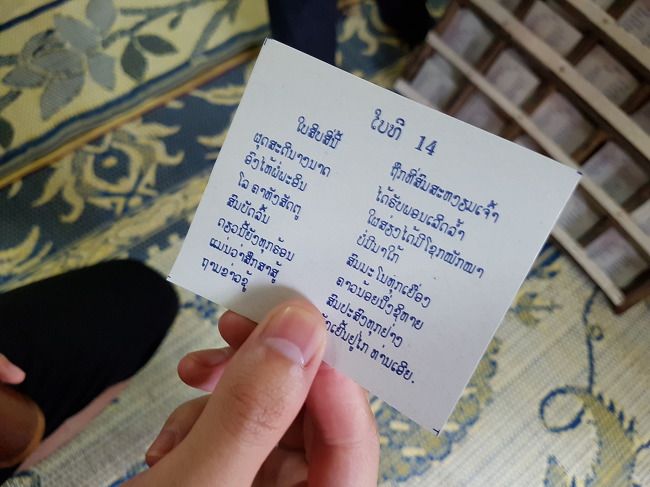 ໃບທີ 14
ໃບສິບສີ່ນີ້ ຖືກທີ່ສົມສະຫງຽມເຈົ້າ
ຜຸດສະດີນາງນາດ ໄດ້ຮັບພອນເລີດລ້ຳ
ອົງໄທ້ຜ່ຜະອິນ ໃສ່ຊ່ອງໄດ້ມີໂຊກໜັກໜາ
ໂລ ຄາທັງສັດຕູ ບໍ່ມີມາໃກ້
ສົມບັດລົ້ນ ສົມມະໂນທຸກເຍື່ອງ
ດຽວນີ້ຍັງທຸກຮ້ອນ ລາວນ້ອຍນຶ່ງຊິຫາຍ
ແມ່ນວ່າສຶກສາສູ້ ສົມປະສົງທຸກຢ່າງ
ຖາມຂ່າວຊູ້ ເຢັ້ນຢູ່ໄກ ທ່ານເອີຍ.